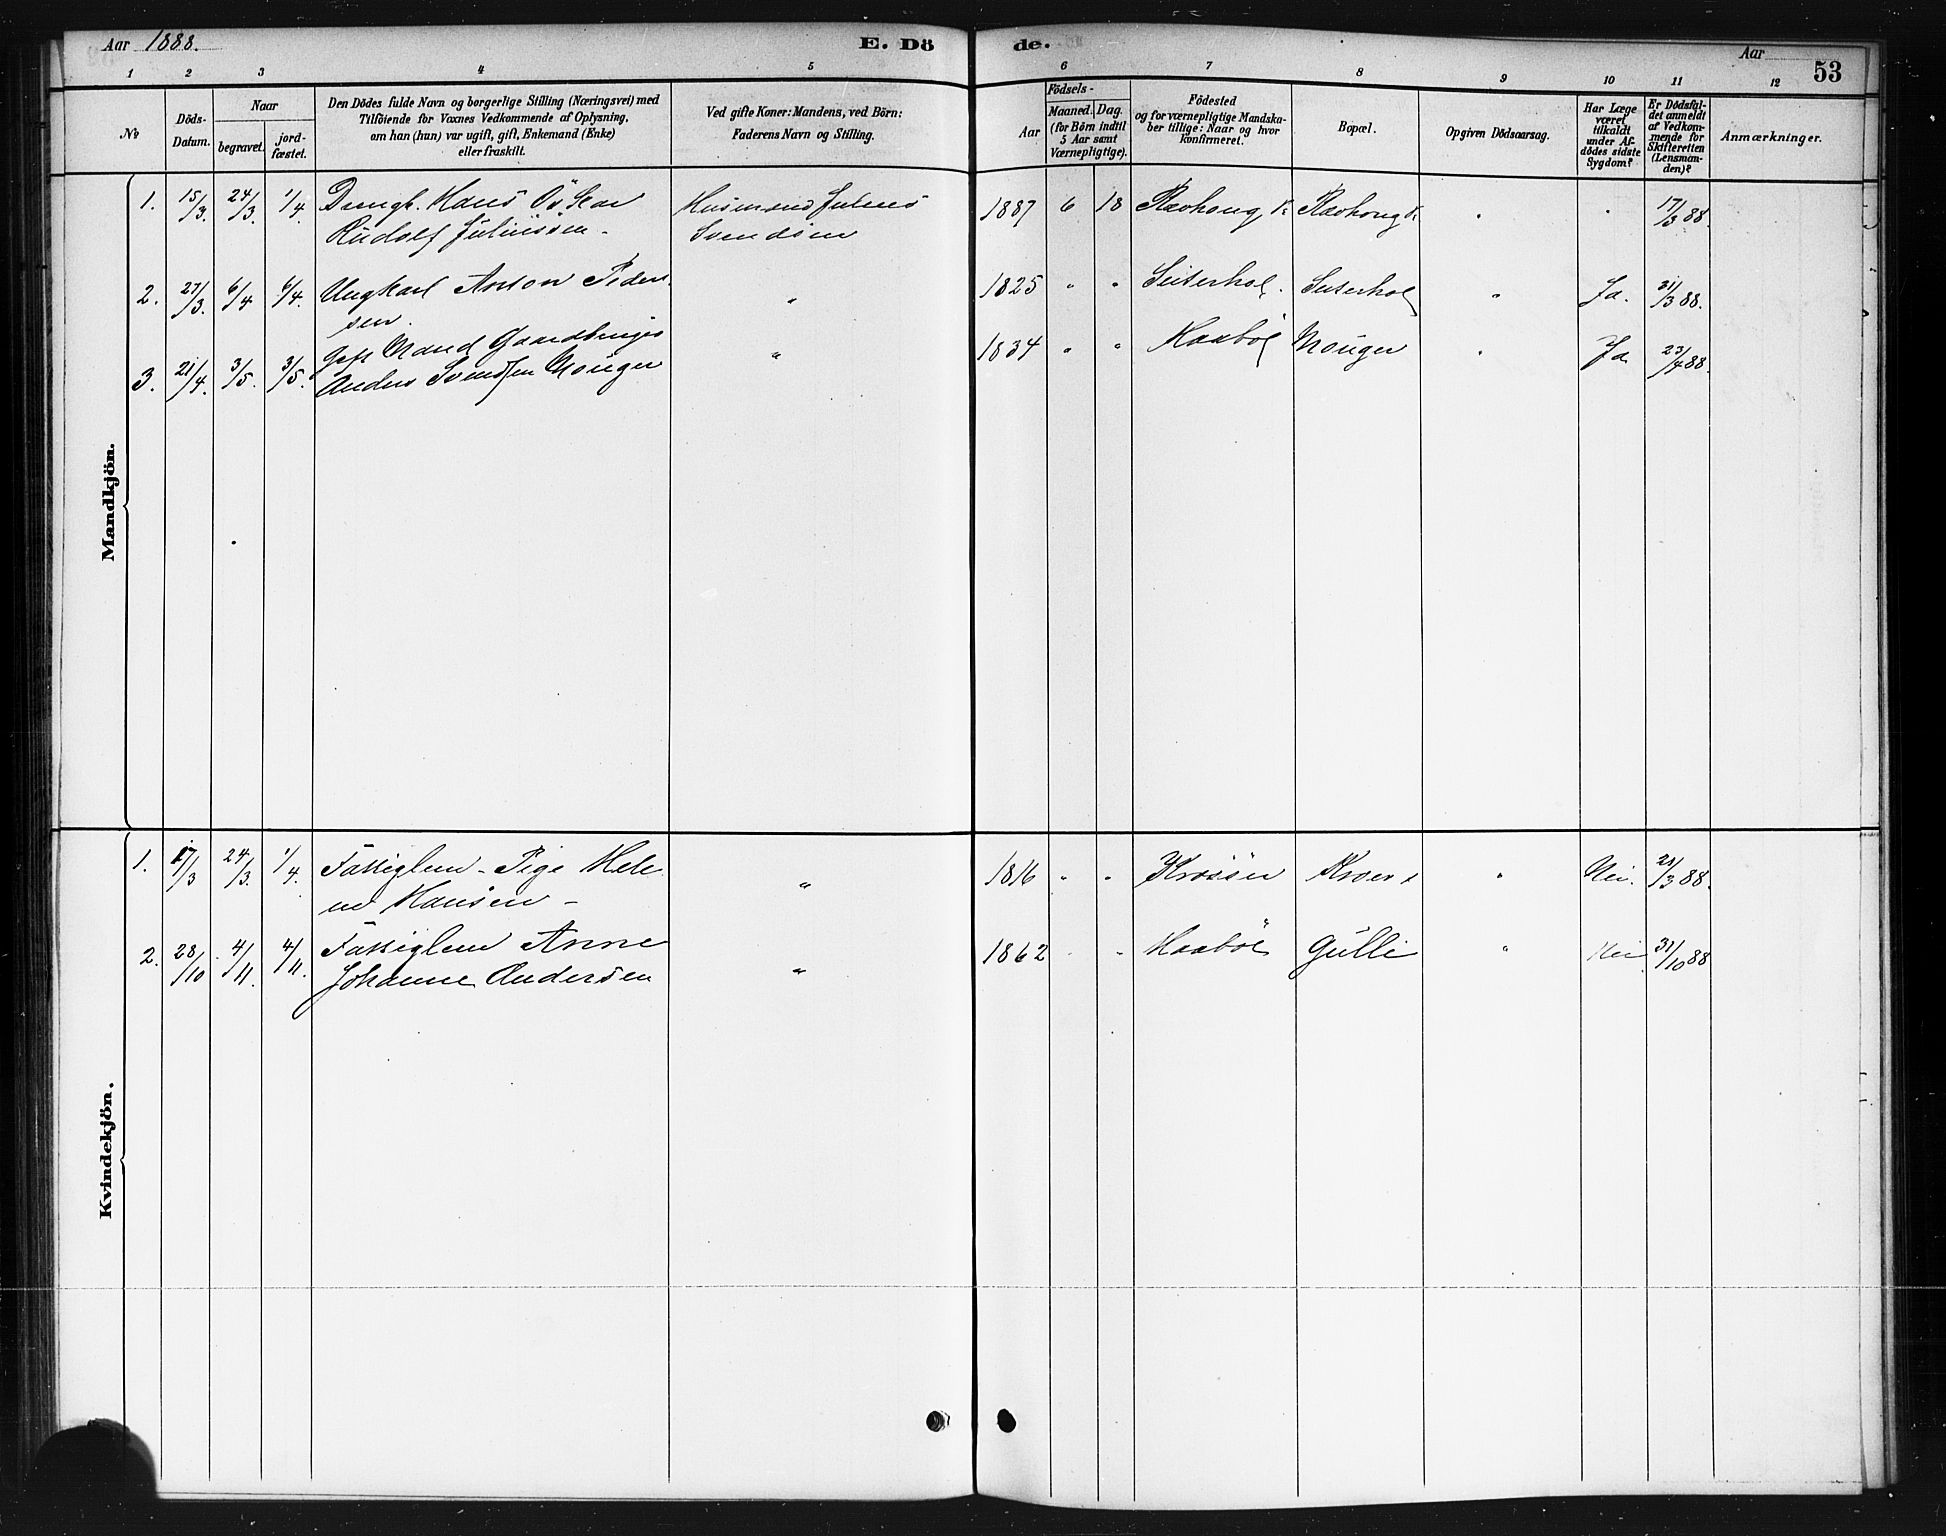 Aar 1888.
E. Dö
de.
Aar
53
1 2 3 4 5 6 7 8 9 10 11 12
No
Döds-
Datum.
Naar
begravet.
jord-
fæstet.
Den Dödes fulde Navn og borgerlige Stilling (Næringsvei) med
Tilföiende for Voxnes Vedkommende af Oplysning,
om han (hun) var ugift, gift, Enkemand (Enke)
eller fraskilt.
Ved gifte Koner: Mandens, ved Börn:
Faderens Navn og Stilling.
Födsels-
Aar
Maaned.
Dag.
(for Börn indtil
5 Aar samt
Værnepligtige).
Födested
og for værnepligtige Mandska-
ber tillige: Naar og hvor
konfirmeret.
Bopæl.
Opgiven Dödsaarsag.
Har Læge
været
tilkaldt
under Af-
dödes sidste
Sygdom?
Er Dödsfal-
det anmeldt
af Vedkom-
mende for
Skifteretten
(Lensman-
den)?
Anmærkninger.
Mandkjön.
1. 15/3. 24/3. 1/4. Drengb. Hans Oskar Husmand Julius 1887 6 18 17/3 88.
Rudolf Juliussen - Svendsen
2. 27/3. 6/4 6/4. Ungkarl Anton Peder " 1825 " " Seterhol. Seterhol " Ja. 31/3 88.
sen.
Gift Mand Gaardbruger
3. 21/4. 3/5. 3/5. Anders Svendsen Mouger " 1834 " " Haabøl Mouger " Ja 23/4 88.
Kvindekjön.
1. 17/3 24/3. 1/4. Fattiglem - Pige Hele " 1816 " " Kroer " Nei. 21/3 88.
ne Hansen -
2. 28/10 4/11. 4/11. Fattiglem Anne " 1862 " " Haabøl Gulli " Nei 31/10 88
Johanne Andersen